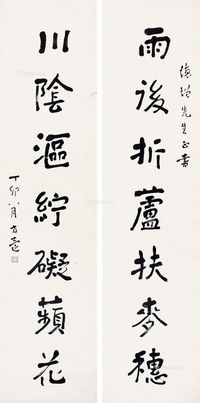 先生正書
雨後折蘆扶麥穗
川陰漚紵礙蘋花
丁卯八月方還